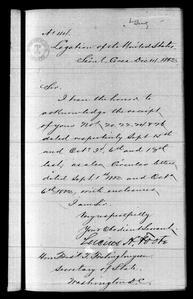 No 114.
Legation of the United States,
Seoul, Corea Dec 14, 188
Sir,
I have the honor to
acknowledge the receipt
of your Nos 20, 22, 24 & 26
dated respectively Sept 15th
and Oct 3d, 6th and 17th
last, as also Circular letter
dated Sept 188 and Oct
6th 188, with enclosures.
I am Sir
Very respectfully
Your Obedient Servant,
Lucius H. Foote
Hon. Fredk T. Frelinghuysen
Secretary of State,
Washington D.C.